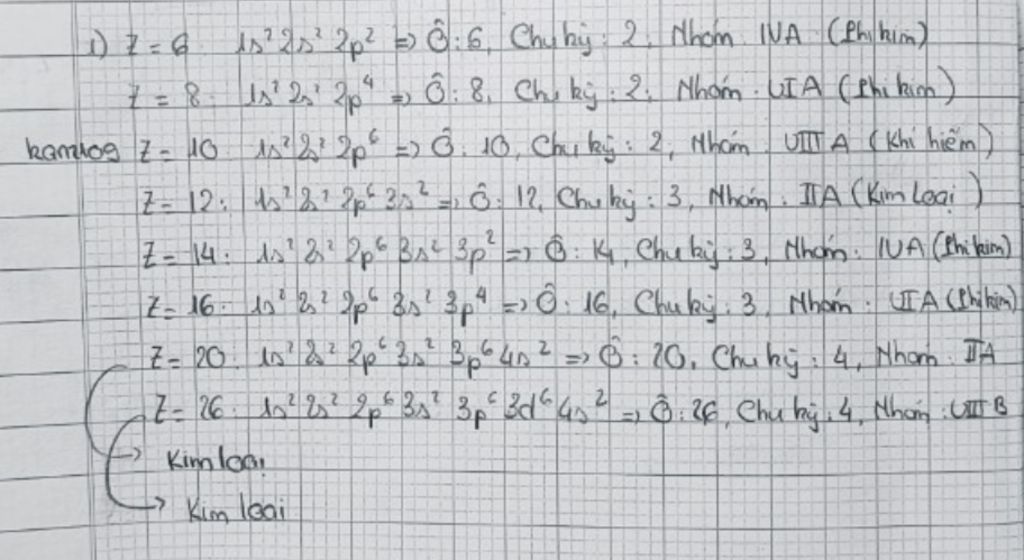 1) Z = 6: 1s² 2s² 2p² => Ô: 6, Chu kỳ: 2, Nhóm IVA (Phi kim)
Z = 8: 1s² 2s² 2p⁴ => Ô: 8, Chu kỳ: 2, Nhóm: VIA (Phi kim)
Z = 10: 1s² 2s² 2p⁶ => Ô: 10, Chu kỳ: 2, Nhóm VIIIA (Khí hiếm)
Z = 12: 1s² 2s² 2p⁶ 3s² => Ô: 12, Chu kỳ: 3, Nhóm: IIA (Kim Loại)
Z = 14: 1s² 2s² 2p⁶ 3s² 3p² => Ô: 14, Chu kỳ: 3, Nhóm: IVA (Phi kim)
Z = 16: 1s² 2s² 2p⁶ 3s² 3p⁴ => Ô: 16, Chu kỳ: 3, Nhóm: VIA (Phi kim)
Z = 20: 1s² 2s² 2p⁶ 3s² 3p⁶ 4s² => Ô: 20, Chu kỳ: 4, Nhóm: IIA
Z = 26: 1s² 2s² 2p⁶ 3s² 3p⁶ 3d⁶ 4s² => Ô: 26, Chu kỳ: 4, Nhóm: VIIIB
Kim loại
Kim loại